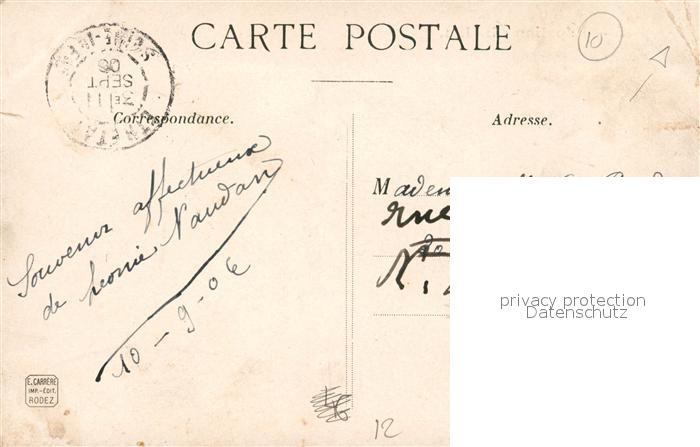 CARTE POSTALE
10
SEPT
06
Correspondance.
Adresse.
Souvenir affectueux
de Léonie Naudan
10-9-06
rue
E. CARRÈRE
IMP.-ÉDIT.
RODEZ
12
privacy protection
Datenschutz